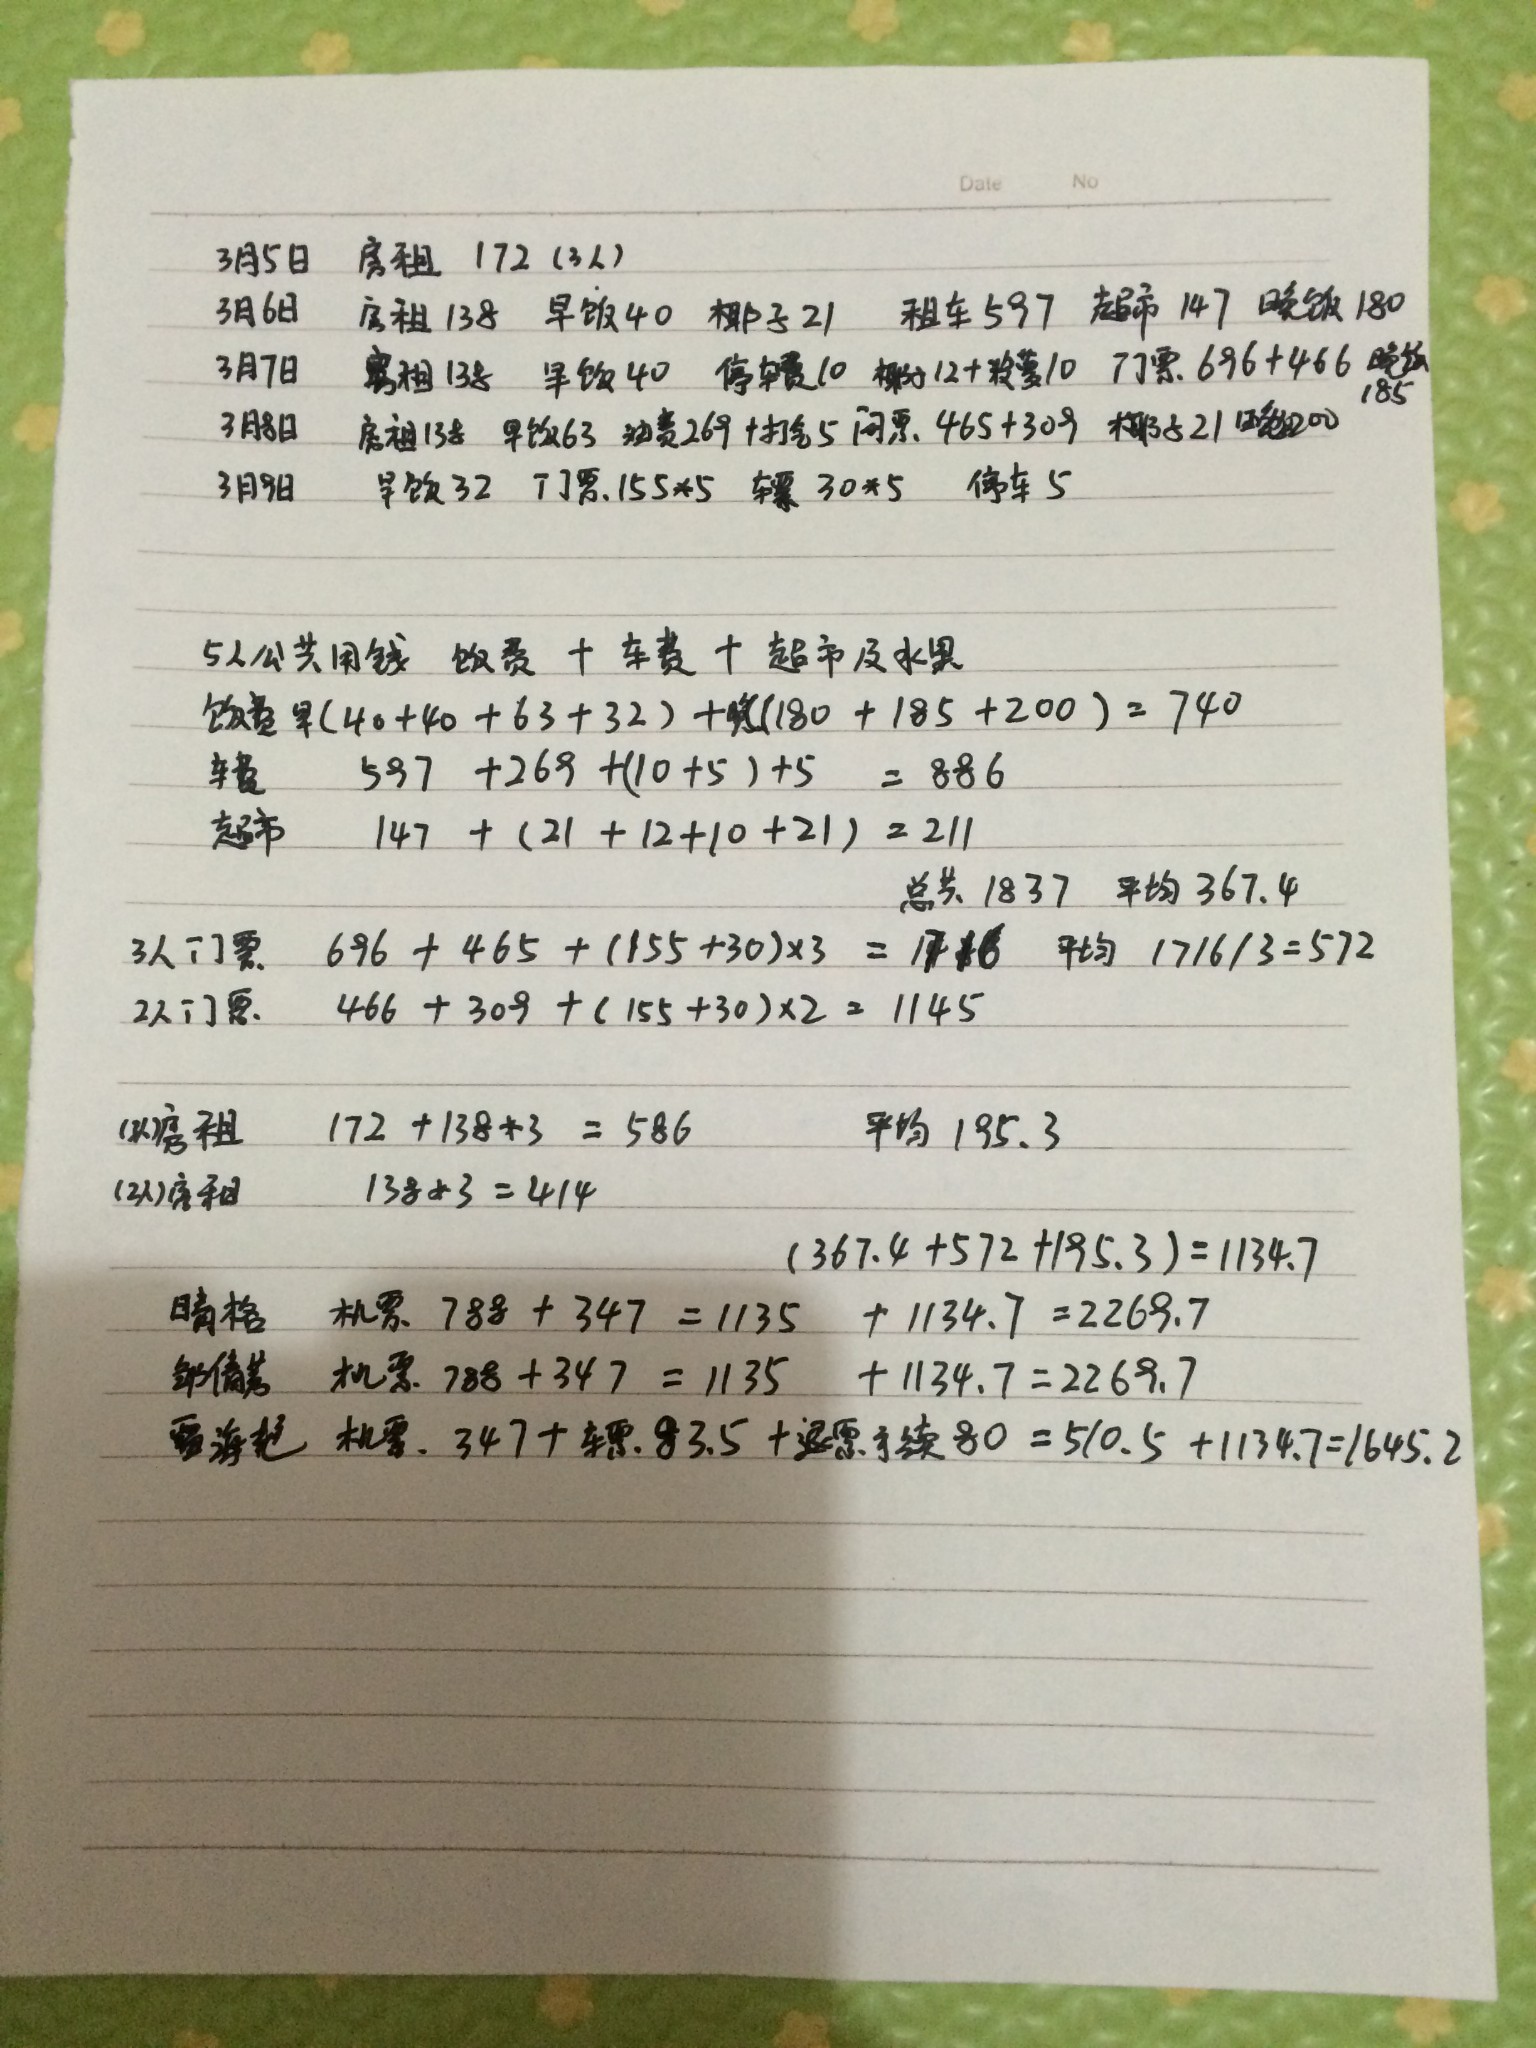 Date No
3月5日 房租 172 (3人)
3月6日 房租 138 早饭 40 椰子 21 租车 597 超市 147 晚饭 180
3月7日 房租 138 早饭 40 停车费 10 12 + 菠萝 10 门票. 696 + 466 晚饭
185
3月8日 房租 138 早饭 63 油费 269 + 打气 5 门票. 465 + 309 椰子 21 晚饭 200
3月9日 早饭 32 门票. 155*5 车票 30*5 停车 5
5人公共用钱 饭费 + 车费 + 超市及水果
饭费 早(40+40+63+32) + 晚(180 + 185 + 200) = 740
车费 597 + 269 + (10+5) + 5 = 886
超市 147 + (21 + 12 + 10 + 21) = 211
总共 1837 平均 367.4
3人门票 696 + 465 + (155+30)×3 = 1716 平均 1716/3=572
2人门票. 466 + 309 + (155+30)×2 = 1145
(3人)房租 172 + 138*3 = 586 平均 195.3
(2人)房租 138*3 = 414
(367.4 + 572 + 195.3) = 1134.7
晴格 机票. 788 + 347 = 1135 + 1134.7 = 2269.7
机票. 788 + 347 = 1135 + 1134.7 = 2269.7
机票. 347 + 车票. 83.5 + 退票手续 80 = 510.5 + 1134.7 = 1645.2